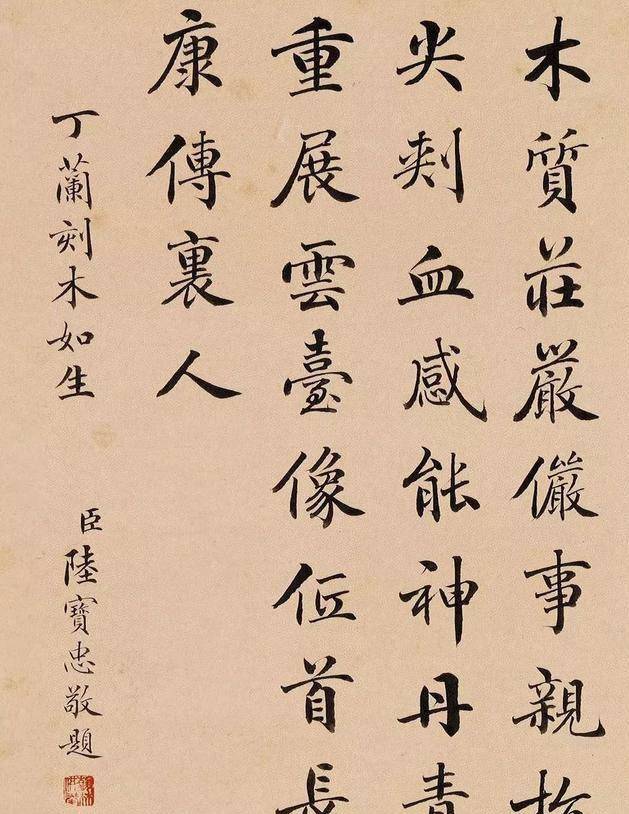 木質莊嚴儼事親指
尖刺血感能神丹青
重展雲臺像低首長
康傳裏人
丁蘭刻木如生
臣陸寶忠敬題